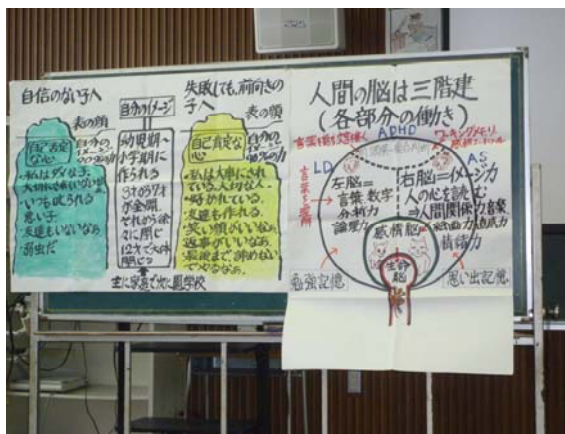 自信のない子へ
表の顔
自己否定
な心
自分の
イメージ
90%の力
私はダメな子
大切にされていない
いつも叱られる
悪い子
友達もいないなあ
弱虫だ
自分のイメージ
幼児期〜
小学期に
作られる
3才のうブが
全開。
それから徐々
に閉じ
12才で大体
閉じる
主に家庭で次に園学校
失敗しても、前向きの
子へ
表の顔
自己肯定
な心
自分の
イメージ
90%の力
私は大事にされ
ている。大切な人。
好かれている。
友達も作れる。
笑い顔がいいなあ
返事がいいなあ。
最後まで、諦めない
でやるなあ。
人間の脳は三階建
(各部分の働き)
ADHD
ワーキングメモリー
LD
AS
言葉
左脳=
言葉・数字
分析力
論理力
右脳=イメージ力
人の心を読む
⇒人間関係力・音楽
情緒力
感情脳
生命
脳
勉強記憶
思い出記憶